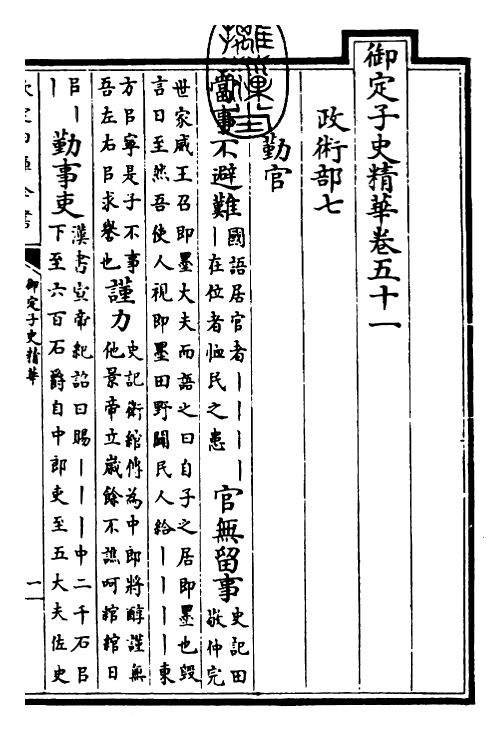 御定子史精華卷五十一
政術部七
勤官
當事不避難 國語居官者丨丨丨丨
丨在位者恤民之患
官無留事 史記田
敬仲完
世家威王召即墨大夫而語之曰自子之居即墨也毀
言日至然吾使人視即墨田野闢民人給丨丨丨丨東
方㠯寧是子不事
吾左右㠯求譽也
謹力 史記衛綰傳為中郎將醇謹無
他景帝立嵗餘不譙呵綰綰日
㠯丨
丨
勤事吏 漢書宣帝紀詔曰賜丨丨丨中二千石㠯
下至六百石爵自中郎吏至五大夫佐史
御定子史精華
一